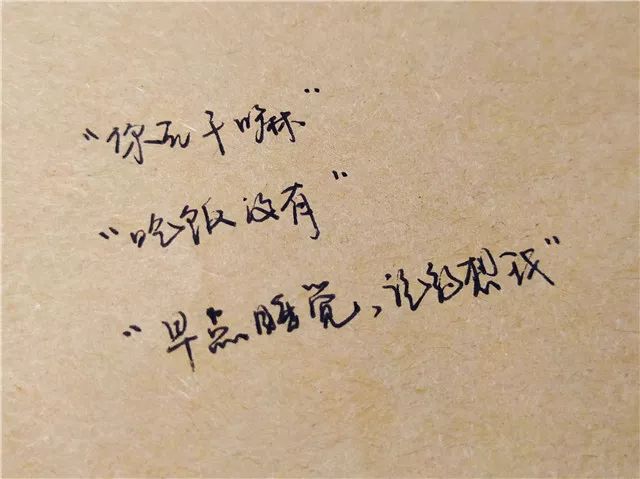 “你在干嘛”
“吃饭没有”
“早点睡觉,记得想我”